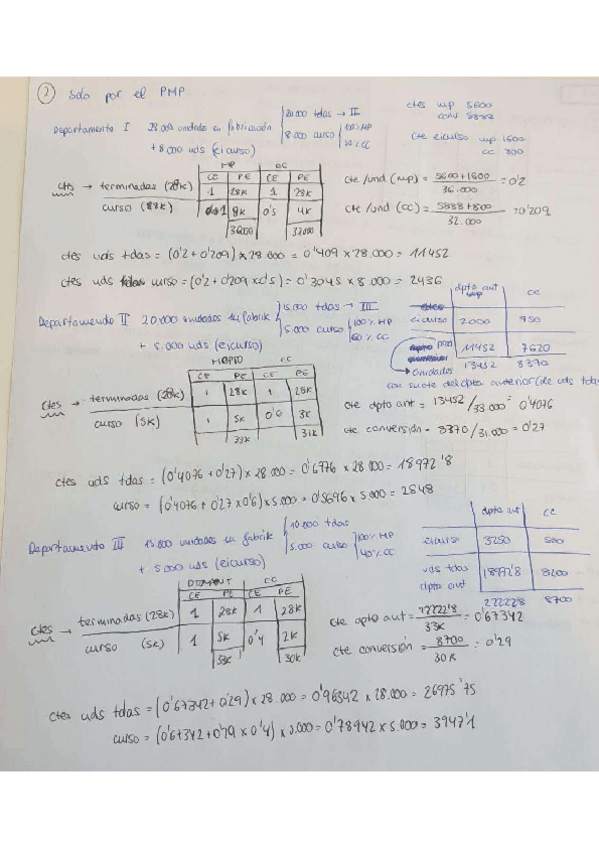 2 Solo por el PMP
ctes mp 5600
conv 5888
Departamento I 28.000 unidades en fabricación 20.000 tdas → II
8.000 curso 100% MP
50% CC
+ 8.000 uds (ei curso)
cte eicurso mp 1600
cc 800
MP CC
CE PE CE PE
ctes → terminadas (28k) 1 28k 1 28k
curso (88k) 1 8k 0'5 4k
36000 32000
cte/und (mp) = 5600+1600 / 36.000 = 0'2
cte/und (cc) = 5888+800 / 32.000 = 0'209
ctes uds tdas = (0'2 + 0'209) x 28.000 = 0'409 x 28.000 = 11452
ctes uds curso = (0'2 + 0'209 x 0'5) = 0'3045 x 8.000 = 2436
Departamento II 20.000 unidades en fabrik 15.000 tdas → III
5.000 curso 100% MP
60% CC
+ 5.000 uds (eicurso)
dpto ant CC
eicurso 2000 750
prod 11452 7620
13452 8370
→ Unidades
con suete del dpto anterior (de uds tdas
CC
CE PE CE PE
ctes → terminadas (28k) 1 28k 1 28k
curso (5k) 1 5k 0'6 3k
33k 31k
cte dpto ant = 13452/33.000 = 0'4076
cte conversión = 8370/31.000 = 0'27
ctes uds tdas = (0'4076 + 0'27) x 28.000 = 0'6776 x 28.000 = 18972'8
curso = (0'4076 + 0'27 x 0'6) x 5.000 = 0'5696 x 5.000 = 2848
Departamento III 15.000 unidades en fabrik 10.000 tdas
5.000 curso 100% MP
40% CC
+ 5.000 uds (eicurso)
dpto ant CC
eicurso 3250 500
uds tdas dpto ant 18972'8 8200
22222'8 8700
DTO ANT CC
CE PE CE PE
ctes → terminadas (28k) 1 28k 1 28k
curso (5k) 1 5k 0'4 2k
33k 30k
cte dpto ant = 22222'8 / 33k = 0'67342
cte conversión = 8700 / 30k = 0'29
ctes uds tdas = (0'67342 + 0'29) x 28.000 = 0'96342 x 28.000 = 26975'75
curso = (0'67342 + 0'29 x 0'4) x 5.000 = 0'78942 x 5.000 = 3947'1